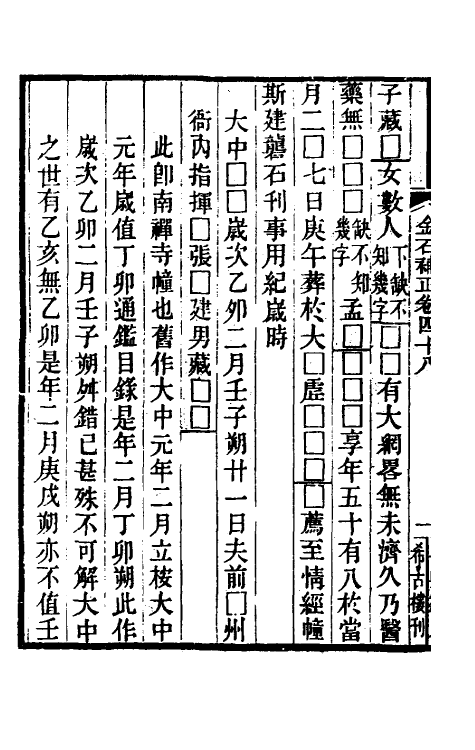 金石補正卷四十八
一
希古樓刊
子藏□女數人下缺不知幾字□□有大網畧無未濟久乃醫
藥無□□□缺不知幾字孟□□□□享年五十有八於當
月二□七日庚午葬於大□虛□□□□薦至情經幢
斯建礱石刊事用紀歲時
大中□□歲次乙卯二月壬子朔廿一日夫前□州
衙內指揮□張□建男藏□□
此卽南禪寺幢也舊作大中元年二月立桉大中
元年歲值丁卯通鑑目錄是年二月丁卯朔此作
歲次乙卯二月壬子朔舛錯已甚殊不可解大中
之世有乙亥無乙卯是年二月庚戌朔亦不值壬